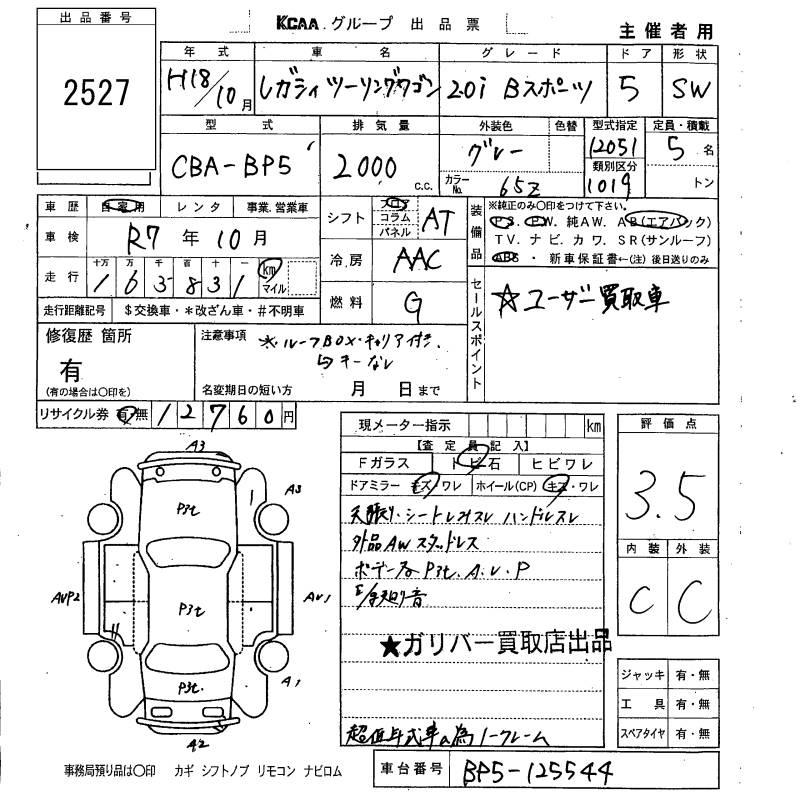 出品番号
2527
KCAA グループ 出品票
主催者用
年式 車名 グレード ドア 形状
H18/10月 レガシィツーリングワゴン 2.0i Bスポーツ 5 SW
型式 排気量 外装色 色替 型式指定 定員・積載
CBA-BP5 2000 c.c. グレー 12051 5名
カラーNo. 65Z 類別区分 1019 トン
車歴 自家用 レンタ 事業.営業車
シフト フロア コラム パネル AT
装備品 ※純正のみ〇印をつけて下さい。
P.S. P.W. 純AW. AB(エアバック)
TV. ナビ. カワ. SR(サンルーフ)
ABS ・ 新車保証書←(注) 後日送りのみ
車検 R7年10月
冷房 AAC
走行 十万 万 千 百 十 一 km マイル
163831
燃料 G
セールスポイント ☆ユーザー買取車
走行距離記号 $交換車・*改ざん車・#不明車
修復歴 箇所 有
(有の場合は〇印を)
注意事項 ※ルーフBOX・キャリア付き.
キーなし
名変期日の短い方 月 日まで
リサイクル券 有・無 12760円
現メーター指示 km
【査定員記入】
Fガラス トビ石 ヒビワレ
ドアミラー キズ・ワレ ホイール(CP) キズ・ワレ
天張り・シートスレ ハンドルスレ
外品AWスタッドレス
ボデー各P3t.A.U.P
異音
★ガリバー買取店出品
超低年式車の為ノークレーム
評価点
3.5
内装 外装
C C
ジャッキ 有・無
工具 有・無
スペアタイヤ 有・無
A3
P3t
A3
AUP2
P3t
AU1
P3t.
A1
A2
事務局預り品は〇印 カギ シフトノブ リモコン ナビロム
車台番号 BP5-125544